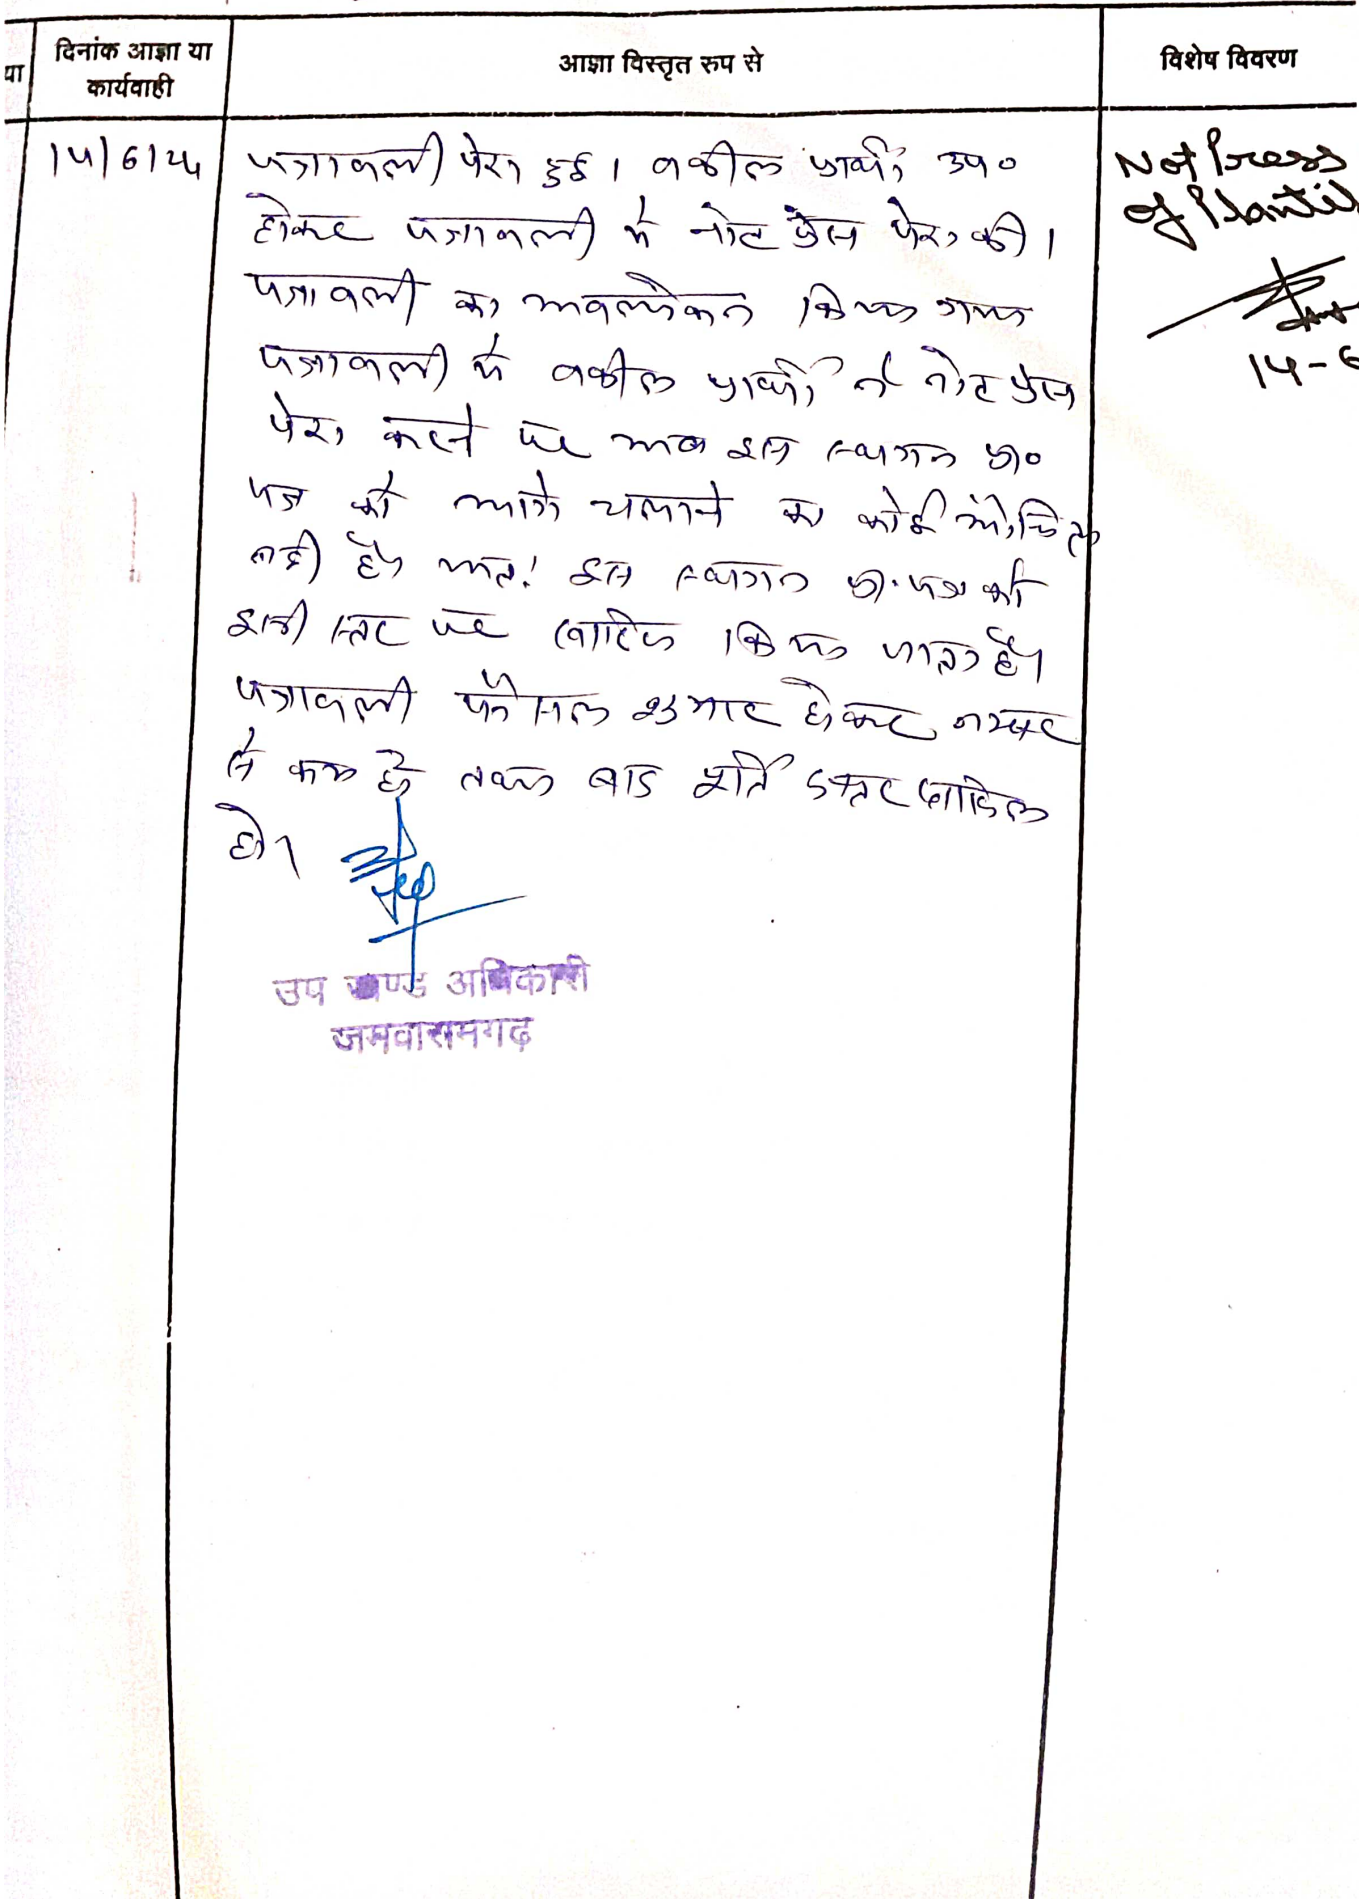 या
दिनांक आज्ञा या
कार्यवाही
आज्ञा विस्तृत रुप से
विशेष विवरण
14/6/24
पत्रावली पेश हुई। वकील प्रार्थी उप०
होकर पत्रावली में नोट प्रेस पेश की।
पत्रावली का अवलोकन किया गया
पत्रावली में वकील प्रार्थी ने नोट प्रेस
पेश करने पर अब इस स्थगन प्रा०
पत्र को आगे चलाने का कोई औचित्य
नहीं है। अतः इस स्थगन प्रा.पत्र को
इसी स्तर पर खारिज किया जाता है।
पत्रावली फैसल शुमार होकर नम्बर
से कम हो तथा बाद पूर्ति दफ्तर दाखिल
हो।
Not Press
of Plantif
14-6
उप खण्ड अधिकारी
जमवारामगढ़